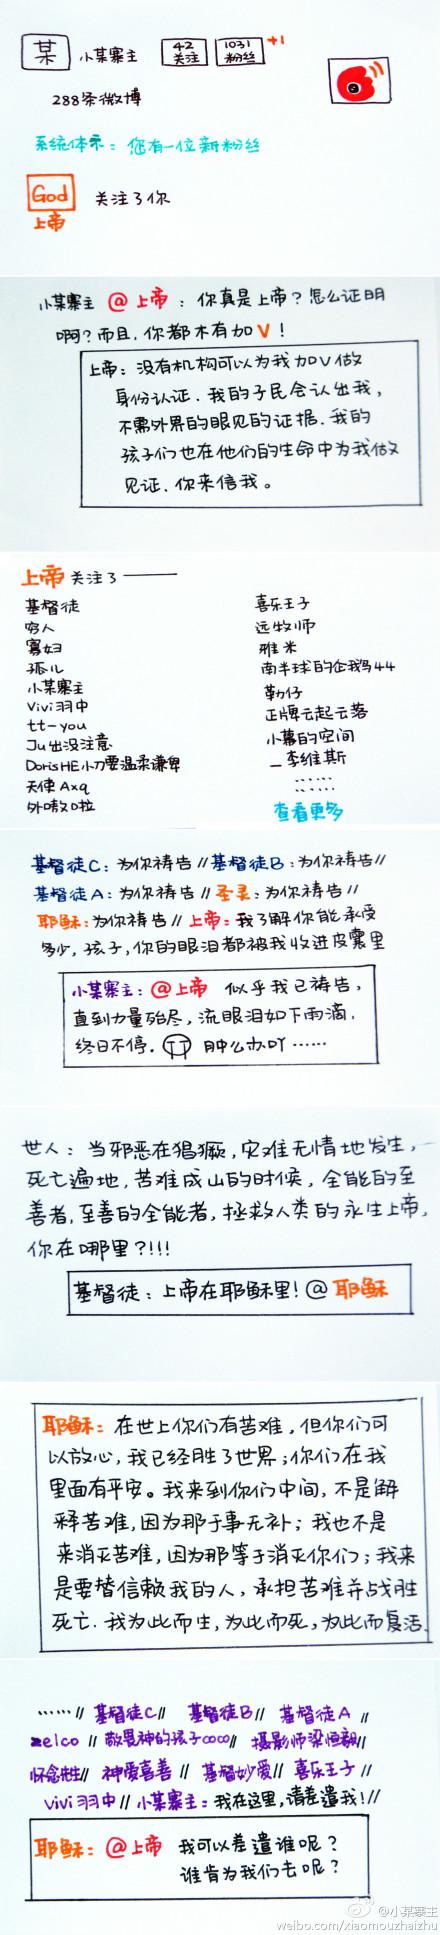 某 小某寨主 42 关注 1031 粉丝 +1
288条微博
系统体示：您有一位新粉丝
God 关注了你
上帝
小某寨主 @上帝：你真是上帝？怎么证明
啊？而且，你都木有加V！
上帝：没有机构可以为我加V做
身份认证．我的子民会认出我，
不需外界的眼见的证据．我的
孩子们也在他们的生命中为我做
见证．你来信我。
上帝关注了——
基督徒
穷人
寡妇
孤儿
小某寨主
Vivi羽中
tt-you
Ju出没注意
DorisHE小刀要温柔谦卑
天使Axq
外嗷口啦
喜乐王子
远牧师
雅米
南半球的企鹅44
勒仔
正牌云起云落
小幕的空间
-李维斯
……
查看更多
基督徒C：为你祷告//基督徒B：为你祷告//
基督徒A：为你祷告//圣灵：为你祷告//
耶稣：为你祷告//上帝：我了解你能承受
多少，孩子，你的眼泪都被我收进皮囊里
小某寨主：@上帝 似乎我已祷告，
直到力量殆尽，流眼泪如下雨滴．
终日不停． 肿么办吖……
世人：当邪恶在猖獗，灾难无情地发生，
死亡遍地，苦难成山的时候，全能的至
善者，至善的全能者，拯救人类的永生上帝，
你在哪里？!!!
基督徒：上帝在耶稣里！@耶稣
耶稣：在世上你们有苦难，但你们可
以放心，我已经胜了世界；你们在我
里面有平安。我来到你们中间，不是解
释苦难，因为那于事无补；我也不是
来消灭苦难，因为那等于消灭你们；我来
是要替信赖我的人，承担苦难并战胜
死亡．我为此而生，为此而死，为此而复活．
……// 基督徒C// 基督徒B// 基督徒A //
zelco // 敬畏神的孩子coco// 摄影师梁恒毅//
怀念先生// 神爱喜善 // 基督妙爱// 喜乐王子//
vivi羽中// 小某寨主：我在这里，请差遣我！//
耶稣：@上帝 我可以差遣谁呢？
谁肯为我们去呢？
@小某寨主
weibo.com/xiaomouzhaizhu